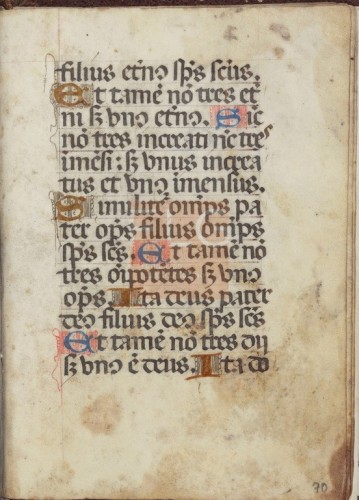 filius etn⁹ sp̄s sc̄us.
Et tamē nō tres et̄
ni sꝫ vn⁹ etn⁹. Sic
nō tres increati nec tres
imēsi: sꝫ vnus increa
tus et vn⁹ imensus.
Similit̄ om̄ps pa
ter op̄s filius om̄ps
sp̄s sc̄s. Et tamē nō
tres oīpotētes sꝫ vn⁹
op̄s. Ita deus pater
de⁹ filius de⁹ sp̄s sc̄s
Et tamē nō tres dij
sꝫ vn⁹ ē deus. Ita do
70